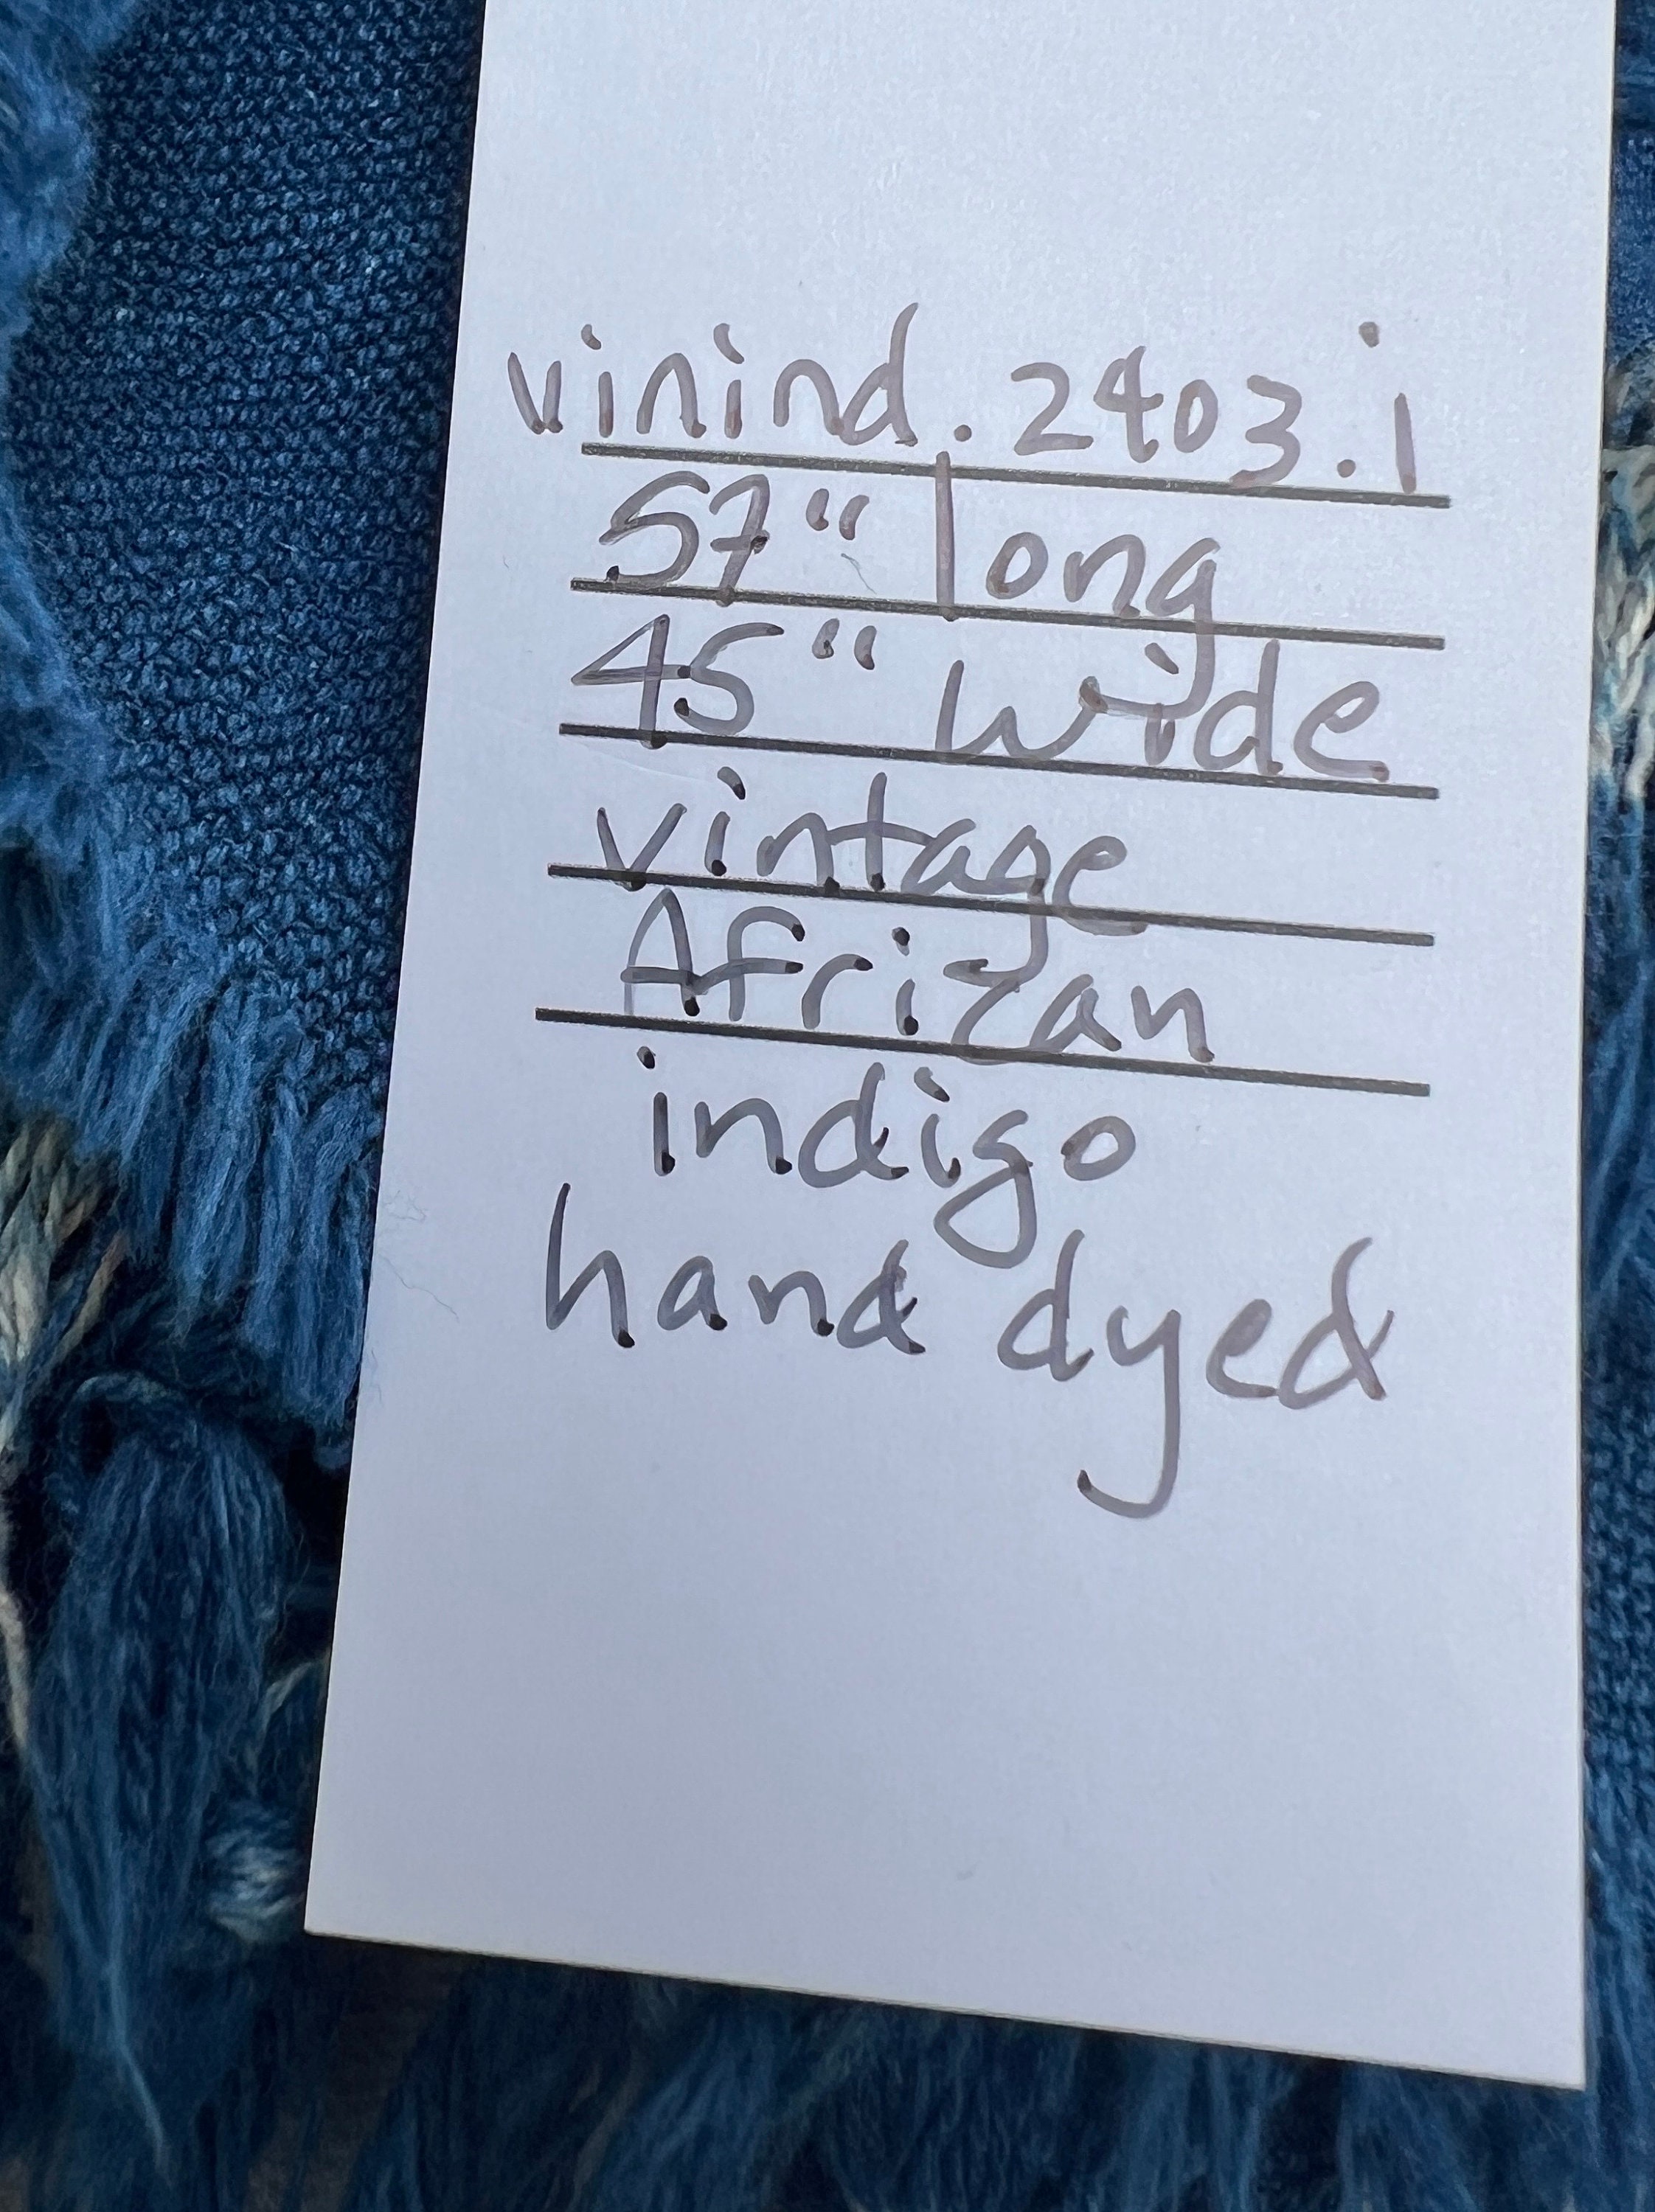 vinind.2403.i
57" long
45" wide
vintage
African
indigo
hand dyed